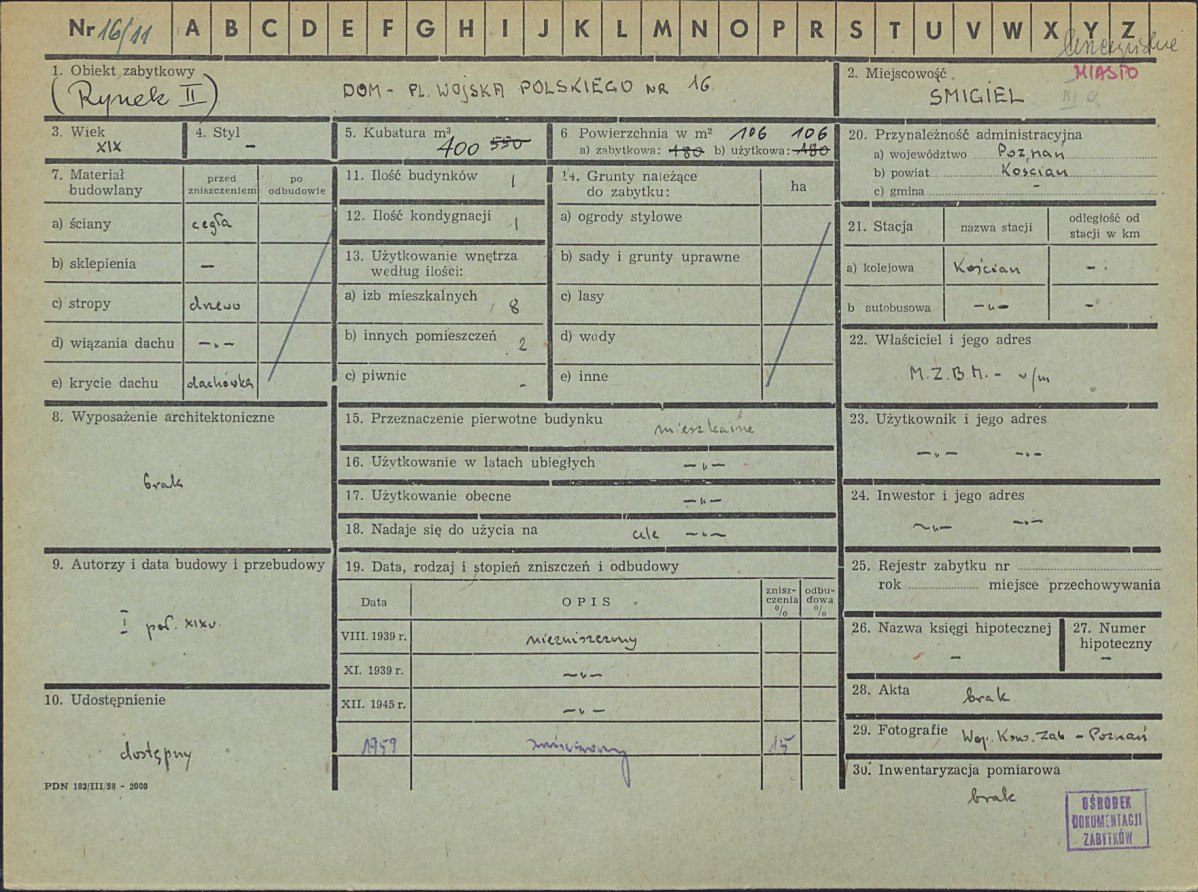 Nr 16/11 A B C D E F G H I J K L M N O P R S T U V W X Y Z
1. Obiekt zabytkowy
(Rynek II)
DOM - PL. WOJSKA POLSKIEGO NR 16.
2. Miejscowość MIASTO
ŚMIGIEL
3. Wiek
XIX
4. Styl
-
5. Kubatura m³
400 550
6 Powierzchnia w m² 106 106
a) zabytkowa: 180 b) użytkowa: 180
7. Materiał budowlany
przed zniszczeniem
po odbudowie
a) ściany cegła
b) sklepienia —
c) stropy drewo
d) wiązania dachu -„-
e) krycie dachu dachówka
8. Wyposażenie architektoniczne
brak
9. Autorzy i data budowy i przebudowy
I poł. XIX w.
10. Udostępnienie
dostępny
PDN 183/III/58 - 2000
11. Ilość budynków 1
12. Ilość kondygnacji 1
13. Użytkowanie wnętrza
według ilości:
a) izb mieszkalnych 8
b) innych pomieszczeń 2
c) piwnic -
14. Grunty należące
do zabytku:
ha
a) ogrody stylowe
b) sady i grunty uprawne
c) lasy
d) wody
e) inne
15. Przeznaczenie pierwotne budynku mieszkalne
16. Użytkowanie w latach ubiegłych -„-
17. Użytkowanie obecne -„-
18. Nadaje się do użycia na cele -„-
19. Data, rodzaj i stopień zniszczeń i odbudowy
Data
OPIS
znisz-
czenia
%
odbu-
dowa
%
VIII. 1939 r. niezniszczony
XI. 1939 r. -„-
XII. 1945 r. -„-
1959 15
20. Przynależność administracyjna
a) województwo Poznań
b) powiat Kościan
c) gmina -
21. Stacja
nazwa stacji
odległość od
stacji w km
a) kolejowa Kościan -
b autobusowa -„- -
22. Właściciel i jego adres
M.Z.B.M. - w/m
23. Użytkownik i jego adres
-„- -„-
24. Inwestor i jego adres
-„- -„-
25. Rejestr zabytku nr
rok miejsce przechowywania
26. Nazwa księgi hipotecznej
-
27. Numer
hipoteczny
-
28. Akta brak
29. Fotografie Woj. Kons. Zab - Poznań
30. Inwentaryzacja pomiarowa
brak
OŚRODEK
DOKUMENTACJI
ZABYTKÓW